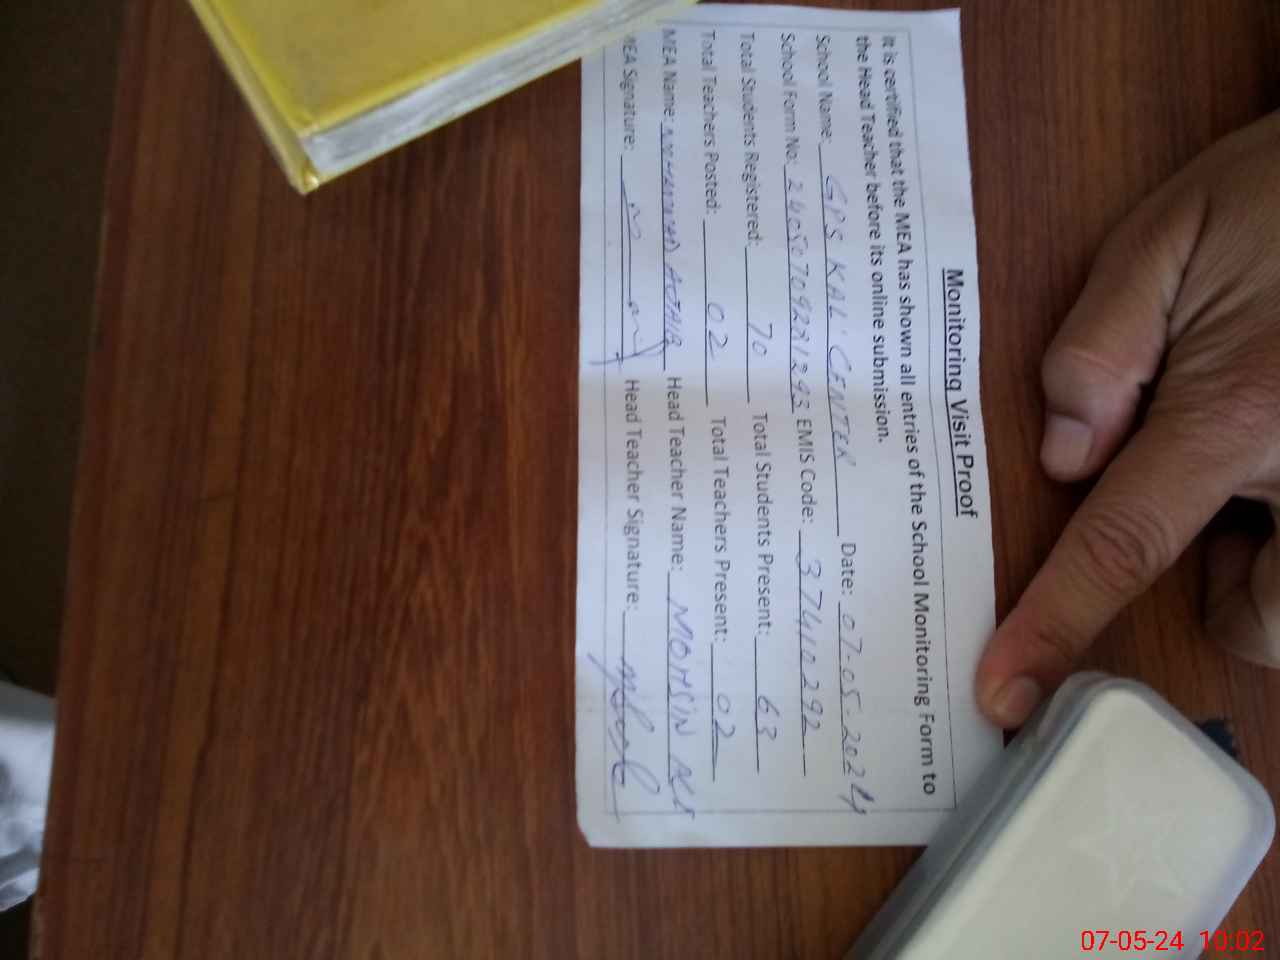 Monitoring Visit Proof
It is certified that the MEA has shown all entries of the School Monitoring Form to
the Head Teacher before its online submission.
School Name: GPS KAL CENTER Date: 07-05-2024
School Form No: EMIS Code: 37410292
Total Students Registered: 70 Total Students Present: 63
Total Teachers Posted: 02 Total Teachers Present: 02
MEA Name: MUHAMMAD Head Teacher Name: MOHSIN ALI
MEA Signature: Head Teacher Signature:
07-05-24 10:02